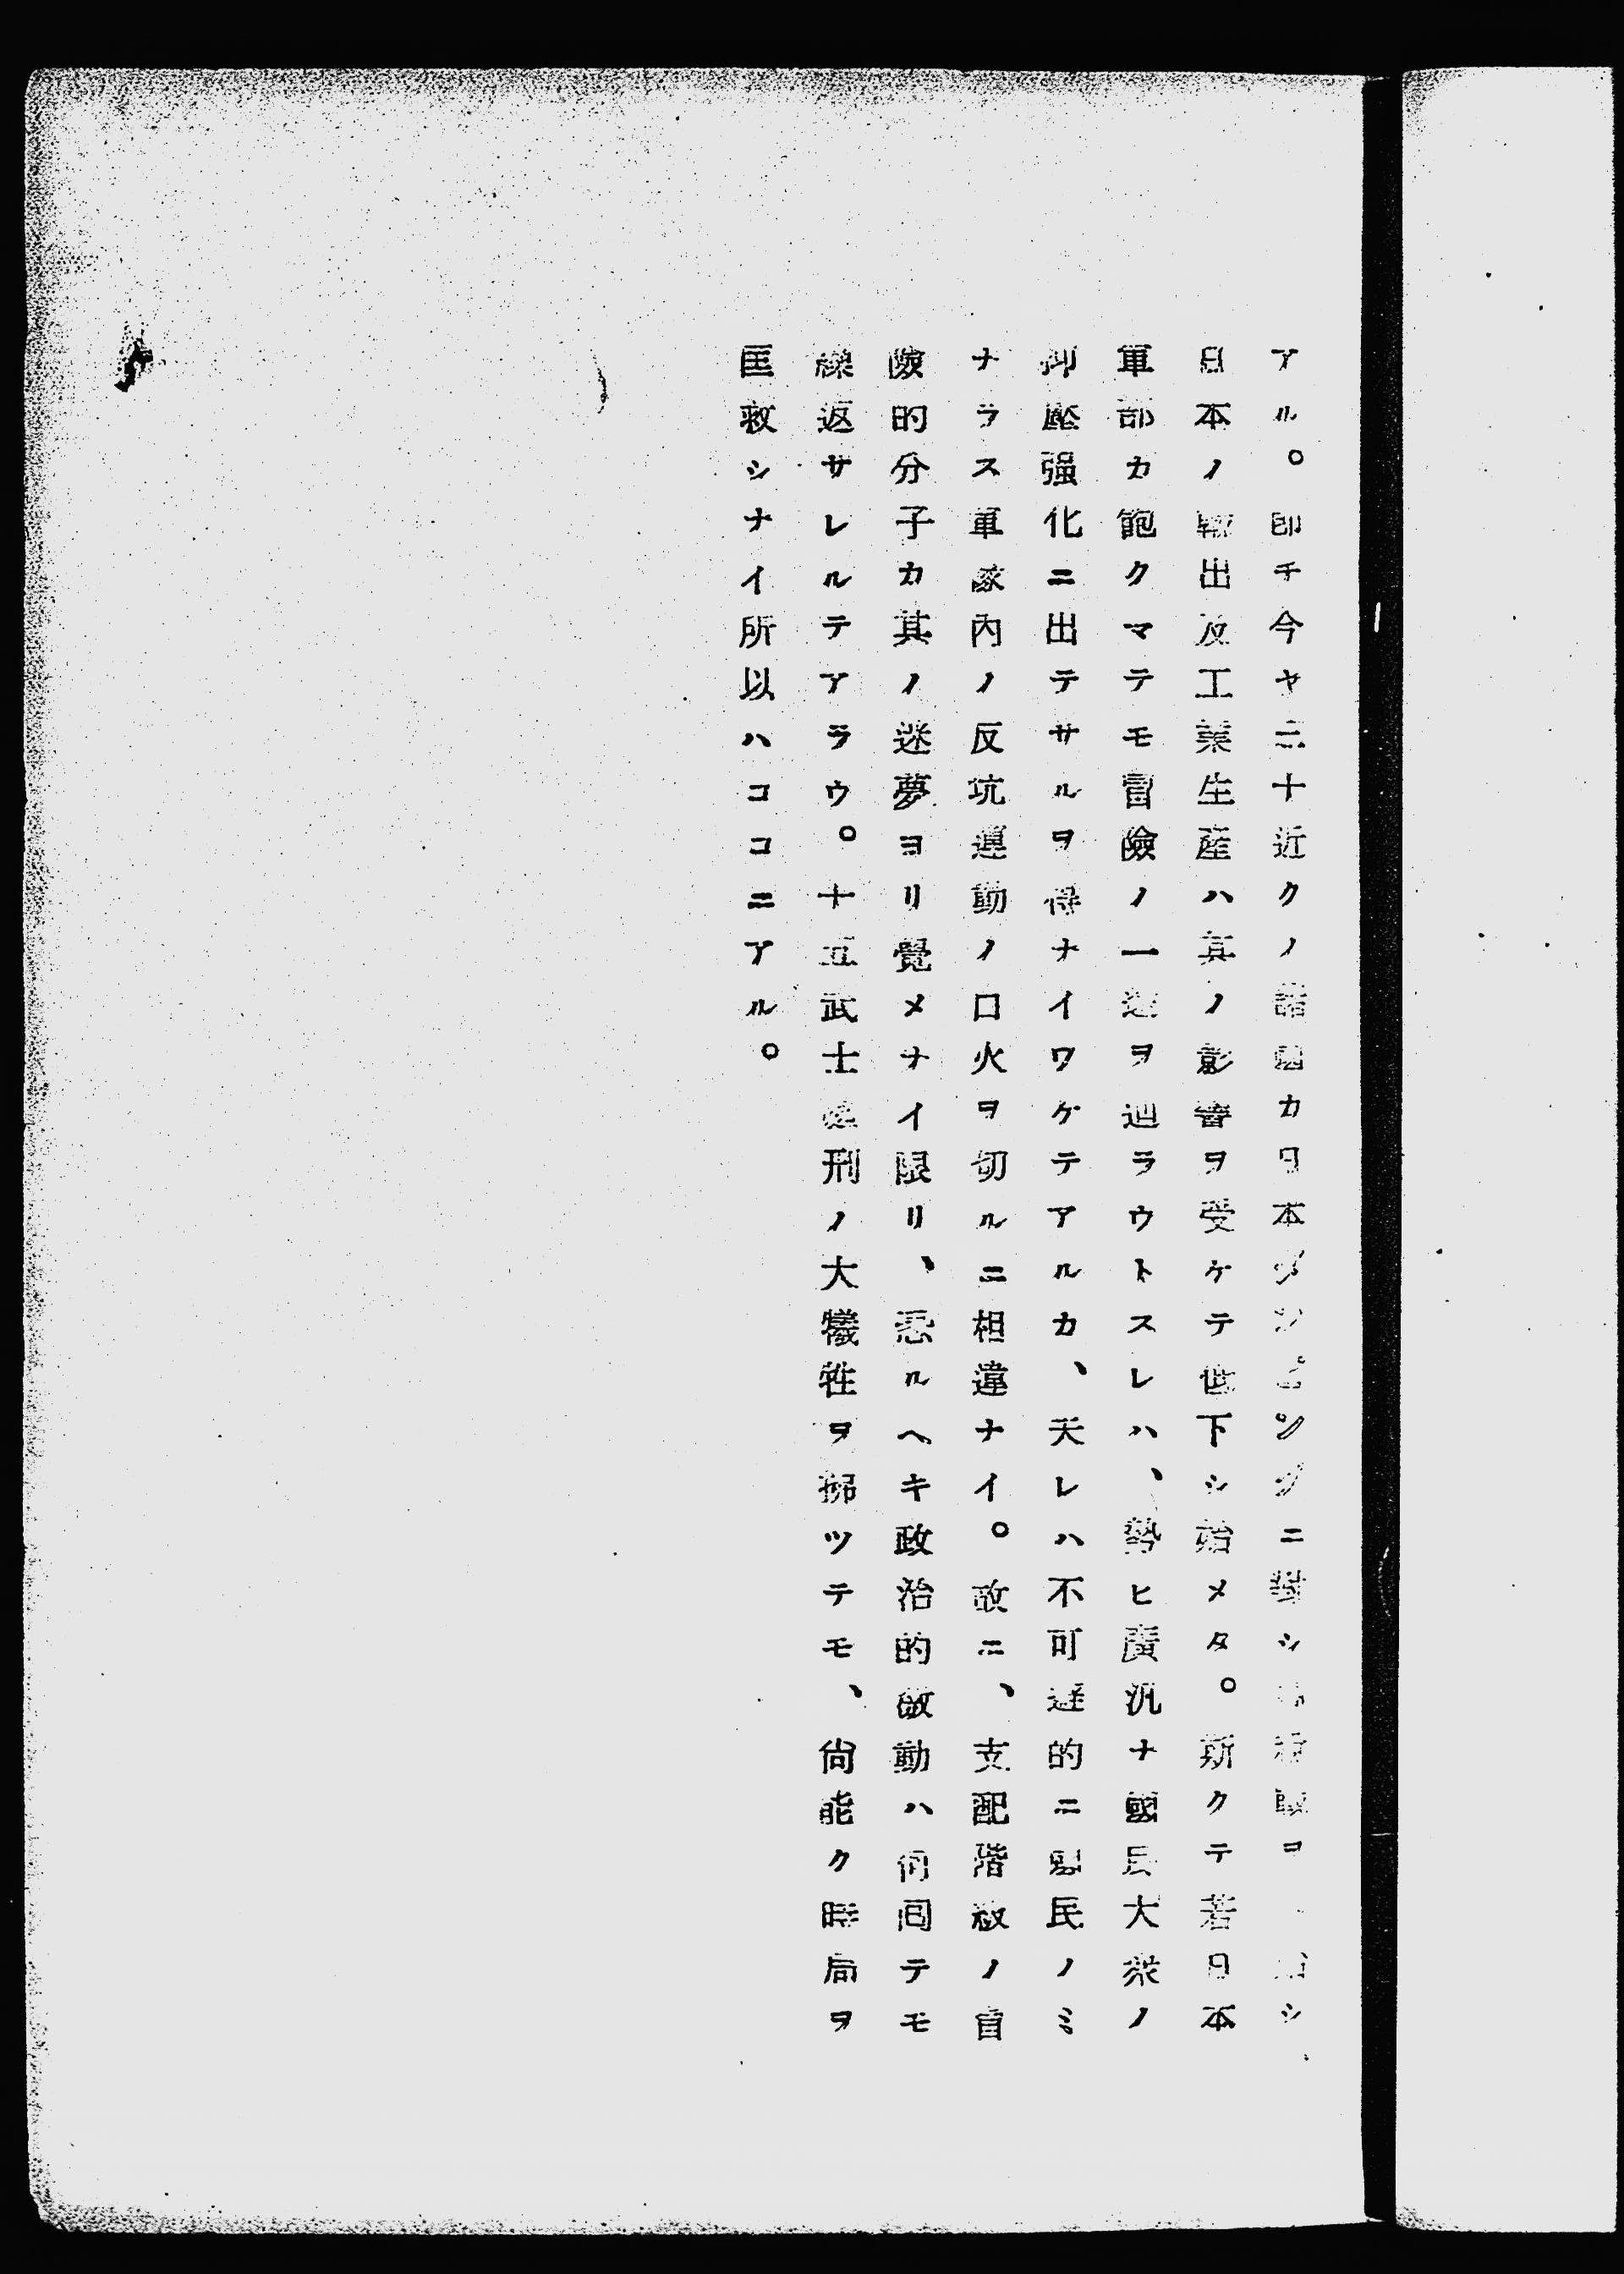 アル。即チ今ヤ二十近クノ諸國カ日本ダンピングニ對シ ヲ シ
日本ノ輸出及工業生産ハ其ノ影響ヲ受ケテ低下シ始メタ。斯クテ若日本
軍部カ飽クマテモ冒險ノ一途ヲ辿ラウトスレハ、勢ヒ廣汎ナ國民大衆ノ
抑壓强化ニ出テサルヲ得ナイワケテアルカ、夫レハ不可避的ニ國民ノミ
ナラス軍隊內ノ反坑運動ノ口火ヲ切ルニ相違ナイ。故ニ、支配階級ノ冒
險的分子カ其ノ迷夢ヨリ覺メナイ限リ、恐ルヘキ政治的激動ハ何間テモ
繰返サレルテアラウ。十五武士處刑ノ大犧牲ヲ拂ツテモ、尙能ク時局ヲ
匡救シナイ所以ハココニアル。